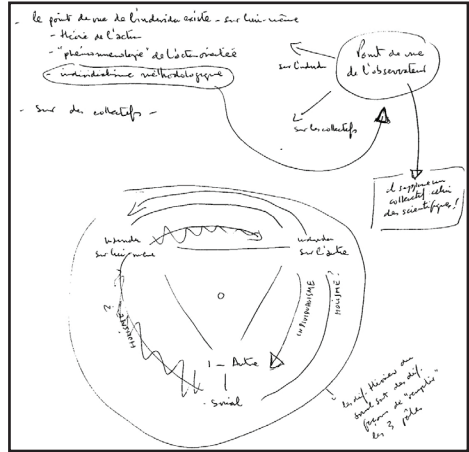 - le point de vue de l'individu existe - sur lui-même
- théorie de l'action
- "phénoménologie" de l'acte
- individualisme méthodologique
- sur des collectifs -
Point de vue
de l'observateur
sur l'individu
sur les collectifs
il suppose un
collectif celui
des scientifiques!
individu
sur lui-même
individu
sur l'autre
INDIVIDUALISME
HOLISME?
HOLISME ?
1 - Autre
- social
les dif. théories du
social sont des dif.
façons de "remplir"
les 3 pôles